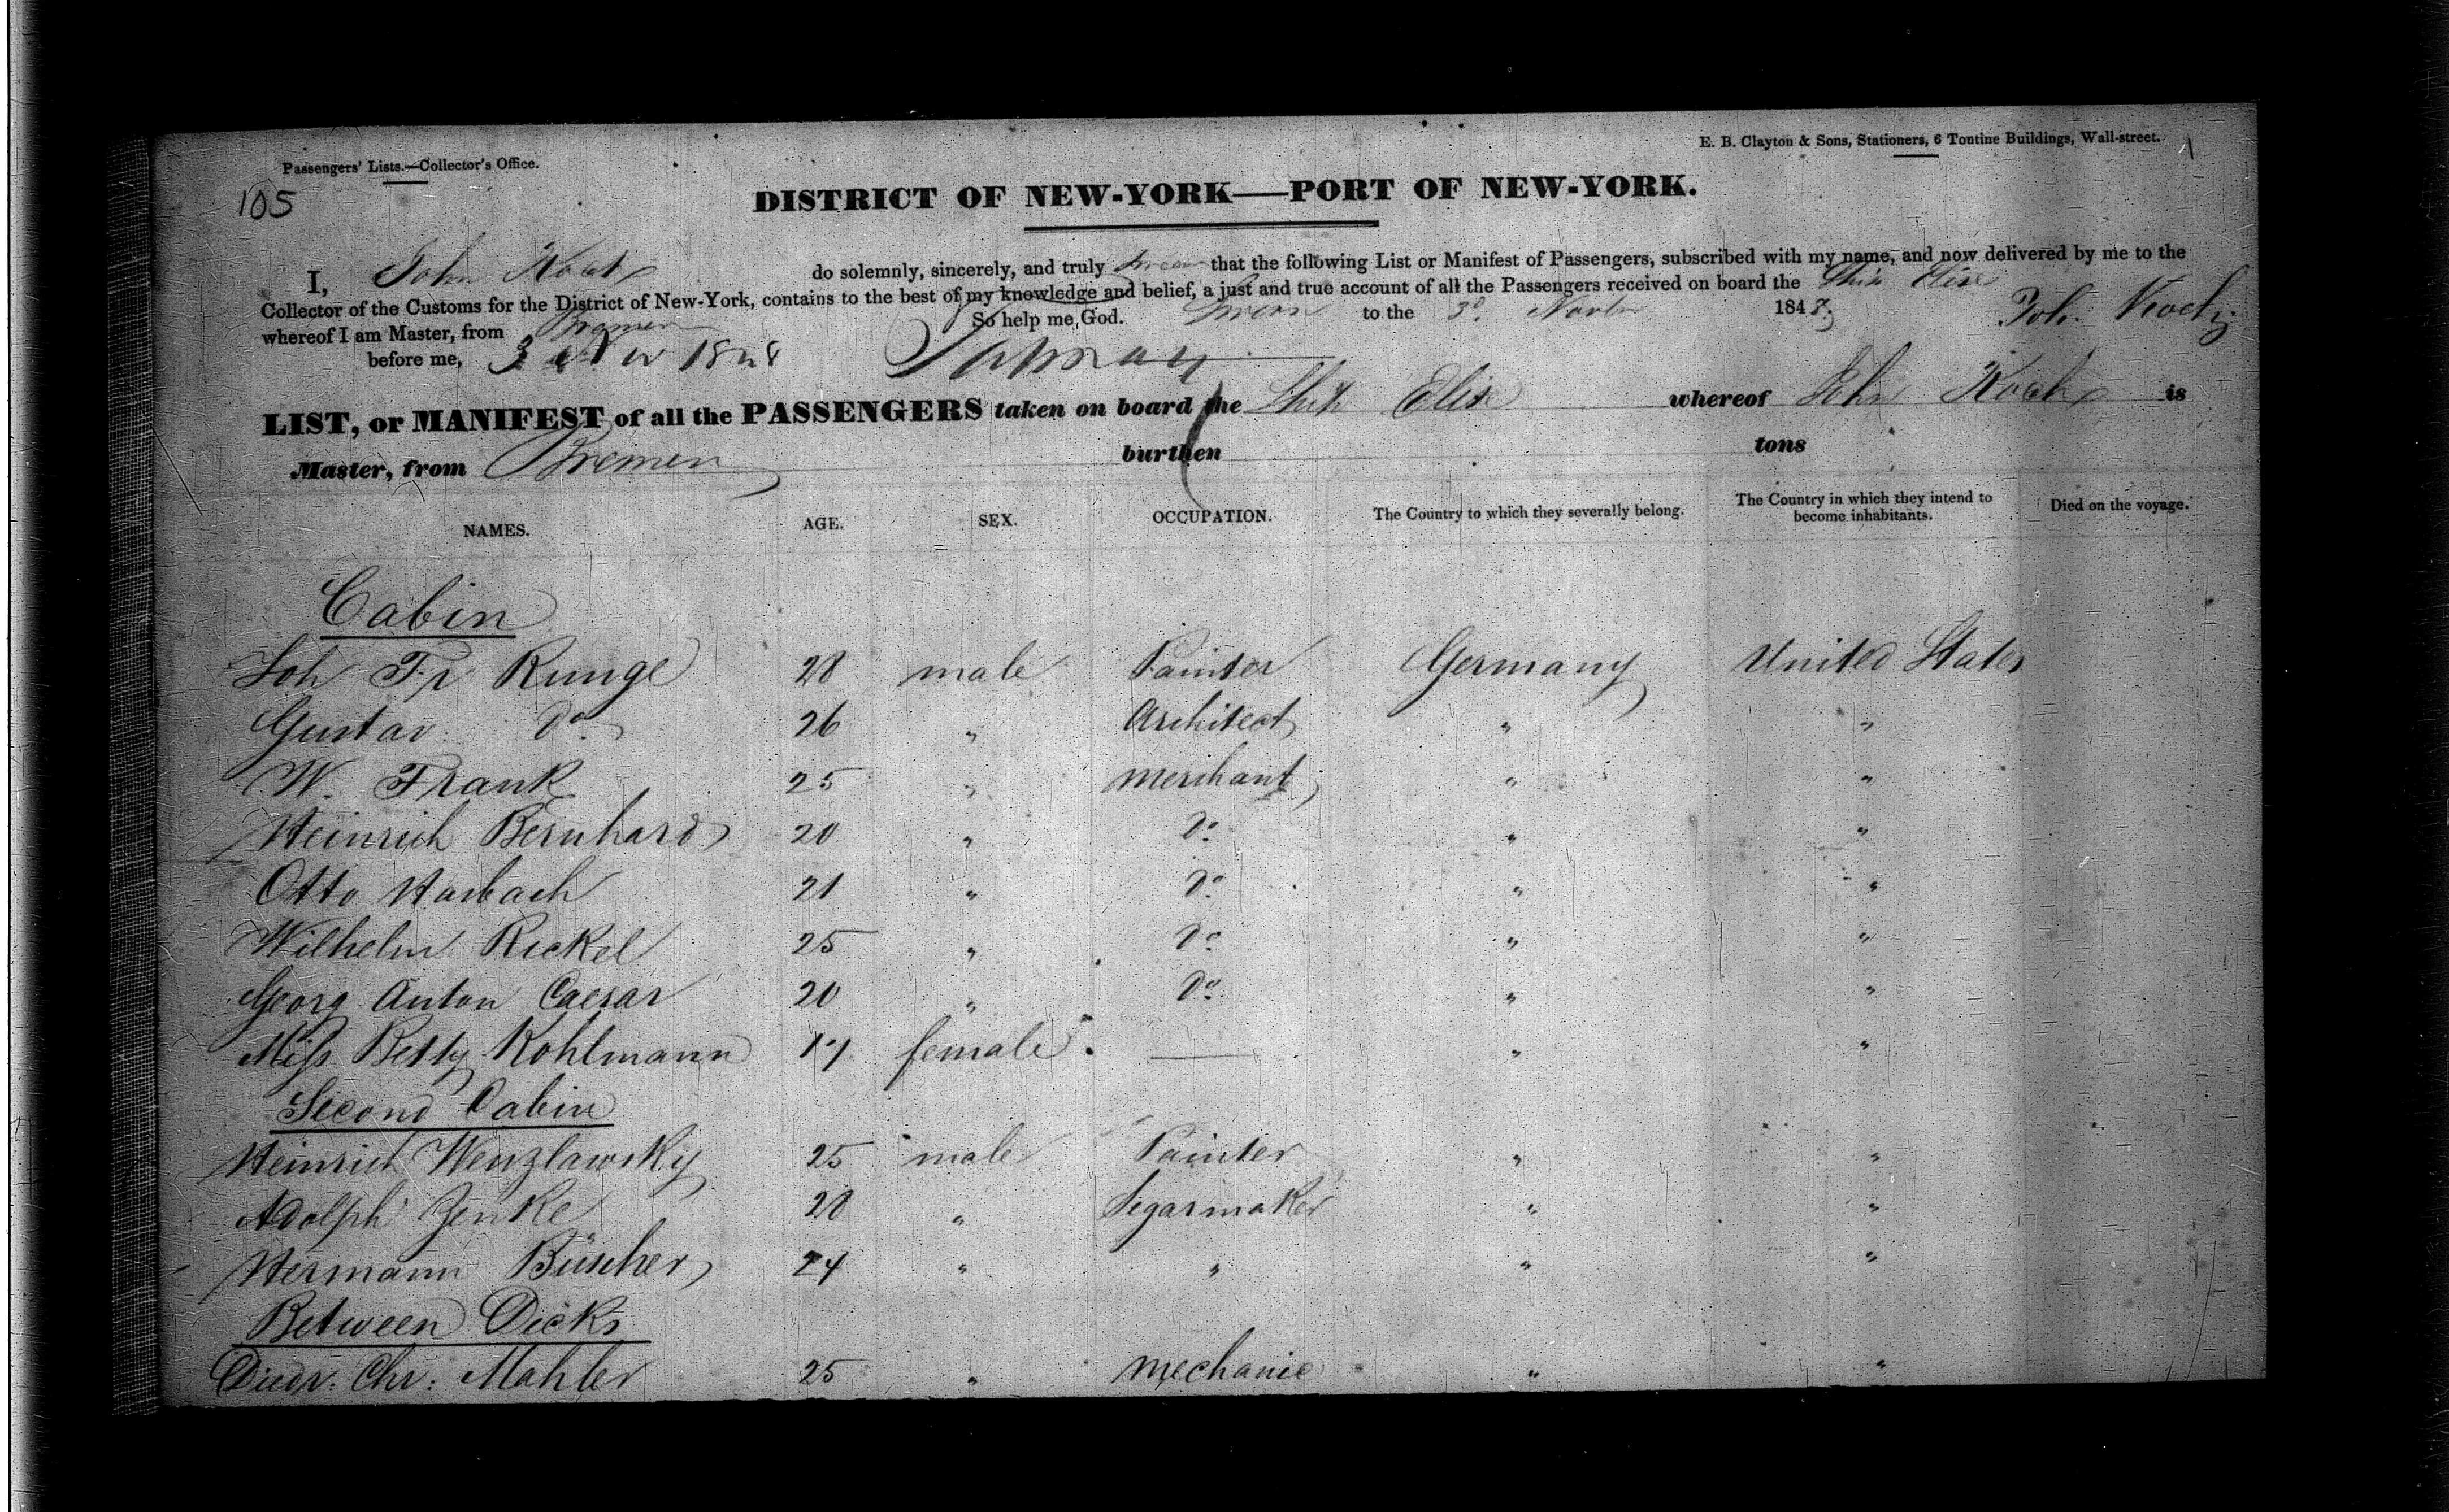 Passengers' Lists.—Collector's Office.
E. B. Clayton & Sons, Stationers, 6 Tontine Buildings, Wall-street.
105
DISTRICT OF NEW-YORK—PORT OF NEW-YORK.
I, John do solemnly, sincerely, and truly swear that the following List or Manifest of Passengers, subscribed with my name, and now delivered by me to the
Collector of the Customs for the District of New-York, contains to the best of my knowledge and belief, a just and true account of all the Passengers received on board the Ship Elise
whereof I am Master, from Bremen So help me God. Sworn to the 3d. 1848 Joh.
before me, 3 Nov 1848
LIST, or MANIFEST of all the PASSENGERS taken on board the Ship Elise whereof John is
Master, from Bremen burthen tons
NAMES. AGE. SEX. OCCUPATION. The Country to which they severally belong. The Country in which they intend to become inhabitants. Died on the voyage.
Cabin
Joh Fr Runge 28 male Painter Germany United States
Gustav. do 26 " Architect " "
W. Frank 25 " merchant " "
Heinrich Bernhard 20 " do " "
Otto Harbach 21 " do " "
Wilhelm Rickel 25 " do " "
Georg Anton Caesar 20 " do " "
Miss Betty Kohlmann 17 female — " "
Second Cabin
Heinrich Wenzlawsky 25 male Painter " "
Adolph Jenke 28 " Segarmaker " "
Hermann Büscher 24 " " " "
Between Decks
Diedr. Chr: Mahler 25 " mechanic " "